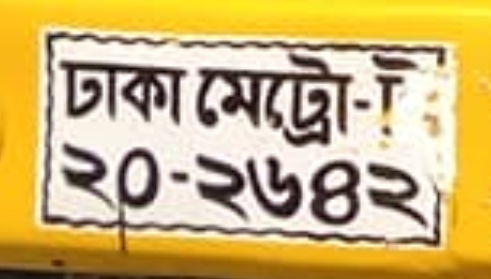 ঢাকা মেট্রো-ট
২০-২৬৪২